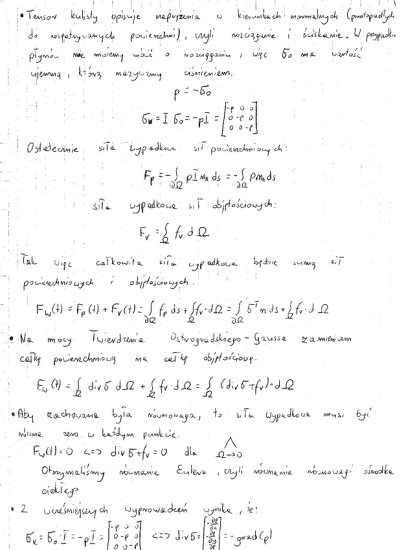 • Tensor kulisty opisuje naprężenia w kierunkach normalnych (prostopadłych
do rozpatrywanych powierzchni), czyli rozciąganie i ściskanie. W przypadku
płynów nie możemy mówić o rozciąganiu, więc σ₀ ma wartość
ujemną, którą nazywamy ciśnieniem.
p = -σ₀
σₖ = I σ₀ = -pI = [-p 0 0; 0 -p 0; 0 0 -p]
Ostatecznie siła wypadkowa sił powierzchniowych:
Fₚ = -∫∂Ω p I n ds = -∫∂Ω p n ds
siła wypadkowa sił objętościowych:
Fᵥ = ∫Ω fᵥ dΩ
Tak więc całkowita siła wypadkowa będzie sumą sił
powierzchniowych i objętościowych.
F_w(t) = Fₚ(t) + Fᵥ(t) = ∫∂Ω fₚ ds + ∫Ω fᵥ·dΩ = ∫∂Ω σᵀ n ds + ∫Ω fᵥ·dΩ
• Na mocy Twierdzenia Ostrogradskiego-Gaussa zamieniam
całkę powierzchniową na całkę objętościową.
F_w(t) = ∫Ω div σ dΩ + ∫Ω fᵥ·dΩ = ∫Ω (div σ + fᵥ)·dΩ
• Aby zachowana była równowaga, to siła wypadkowa musi być
równa zero w każdym punkcie.
F_w(t) = 0 <=> div σ + fᵥ = 0 dla ⋀ Ω→0
Otrzymaliśmy równanie Eulera, czyli równanie równowagi ośrodka
ciekłego
• Z wcześniejszych wyprowadzeń wynika, że:
σₖ = σ₀·I = -pI = [-p 0 0; 0 -p 0; 0 0 -p] <=> div σ = [-∂p/∂x; -∂p/∂y; -∂p/∂z] = -grad(p)